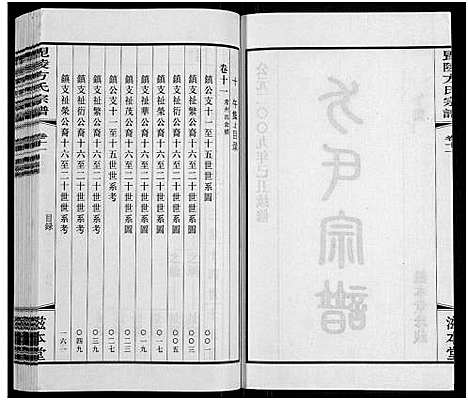 毘陵方氏宗譜
卷十一
滋本堂
公元二〇〇九年己丑續修
方氏宗譜
卷十一
鎮公支十一至十五世世系圖
〇〇一
鎮公支祉榮公裔十六至二十世世系圖
〇〇三
鎮公支祉衍公裔十六至二十世世系圖
〇〇五
鎮公支祉華公裔十六至二十世世系圖
鎮公支祉茂公裔十六至二十世世系圖
〇二三
鎮公支十一至十五世世系考
〇二七
鎮公支祉榮公裔十六至二十世世系考
〇三九
鎮公支祉衍公裔十六至二十世世系考
〇四九
鎮公支祉華公裔十六至二十世世系考
一六一
毘陵方氏宗譜
卷十一
目録